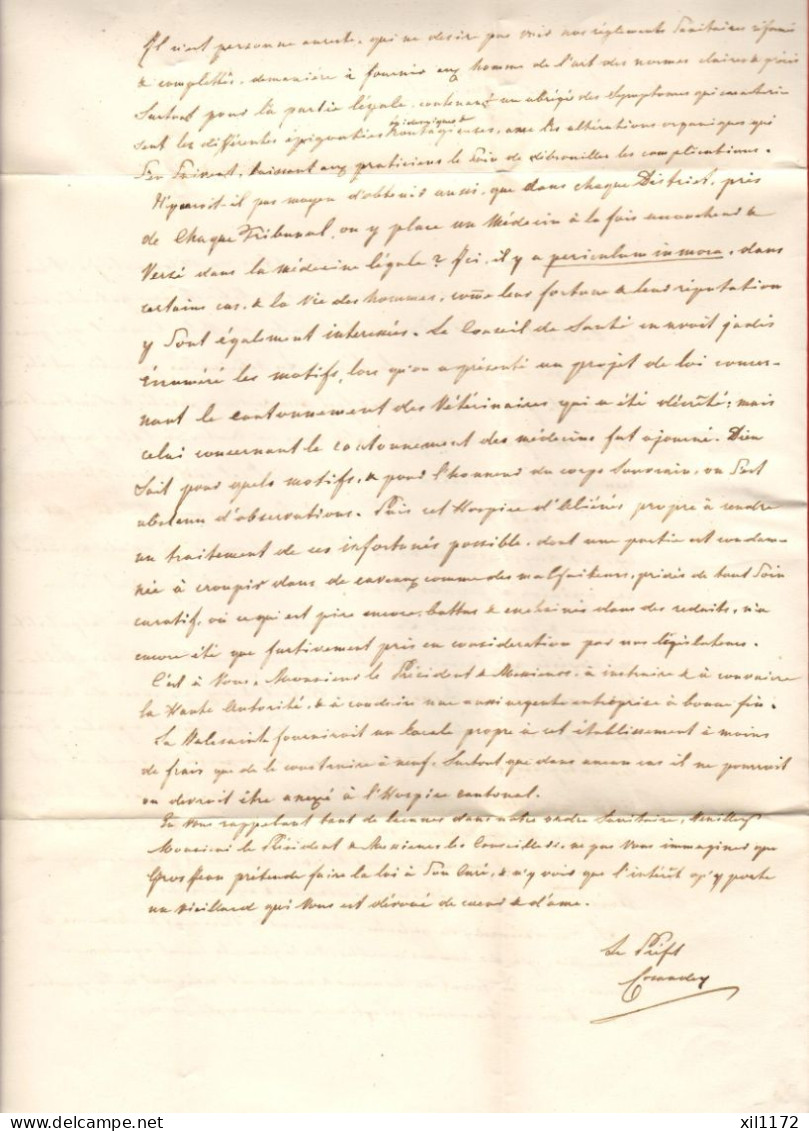 Il n'est personne au reste, qui ne desire pas voir nos réglements sanitaires réformés
& complettés, de maniere à fournir aux homme de l'art des normes claires & précis
surtout pour la partie légale, contenant un abrigé des symptomes qui caractéri
sent les différentes épizooties épidemiques & contagieuses, avec les altérations organiques qui
s'en suivent, laissant aux praticiens le soin de débrouiller les complications.
N'y auroit-il pas moyen d'obtenir aussi, que dans chaque District, près
de Chaque Tribunal, on y place un Médecin à la fois accoucheur &
versé dans la médecine légale? Ici, il y a periculum in mora, dans
certains cas, & la vie des hommes, come leur fortune & leur réputation
y sont également interessés. Le Conseil de Santé en avoit jadis
énuméré les motifs, lors qu'on a présenté un projet de loi concer-
nant le cantonnement des Vétérinaires qui a été décrêté; mais
celui concernant le cantonnement des médecins fut ajourné. Dieu
sait pour quels motifs, & pour l'honneur du corps Souverain, on s'est
abstenu d'observations. Puis cet Hospice d'Aliénés propre à rendre
un traitement de ces infortunés possible, dont une partie est condam-
née à croupir dans de caveaux comme des malfaiteurs, privés de tout soin
curatif, où ce qui est pire encore, battus & enchainés dans des reduits, n'a
encore été que furtivement pris en consideration par nos législateurs.
C'est à Vous, Monsieur le Président & Messieurs, à instruire & à convaincre
la Haute Autorité, & à conduire une aussi urgente entreprise à bonne fin.
La Valesainte fourniroit un locale propre à cet établissement à moins
de frais que de le construire à neuf. Surtout que dans aucun cas il ne pourroit
ou devroit être anexé à l'Hospice cantonal.
En vous rappelant tant de lacunes dans notre ordre sanitaire, Veuillez
Monsieur le Président & Messieurs les Conseillers, ne pas vous immaginer que
Gros Jean prétende faire la loi à son Curé, & n'y voir que l'intérêt qu'y porte
un vieillard qui vous est dévoué de coeur & d'ame.
Le Préfet
Comandey
delcampe.net
xil1172